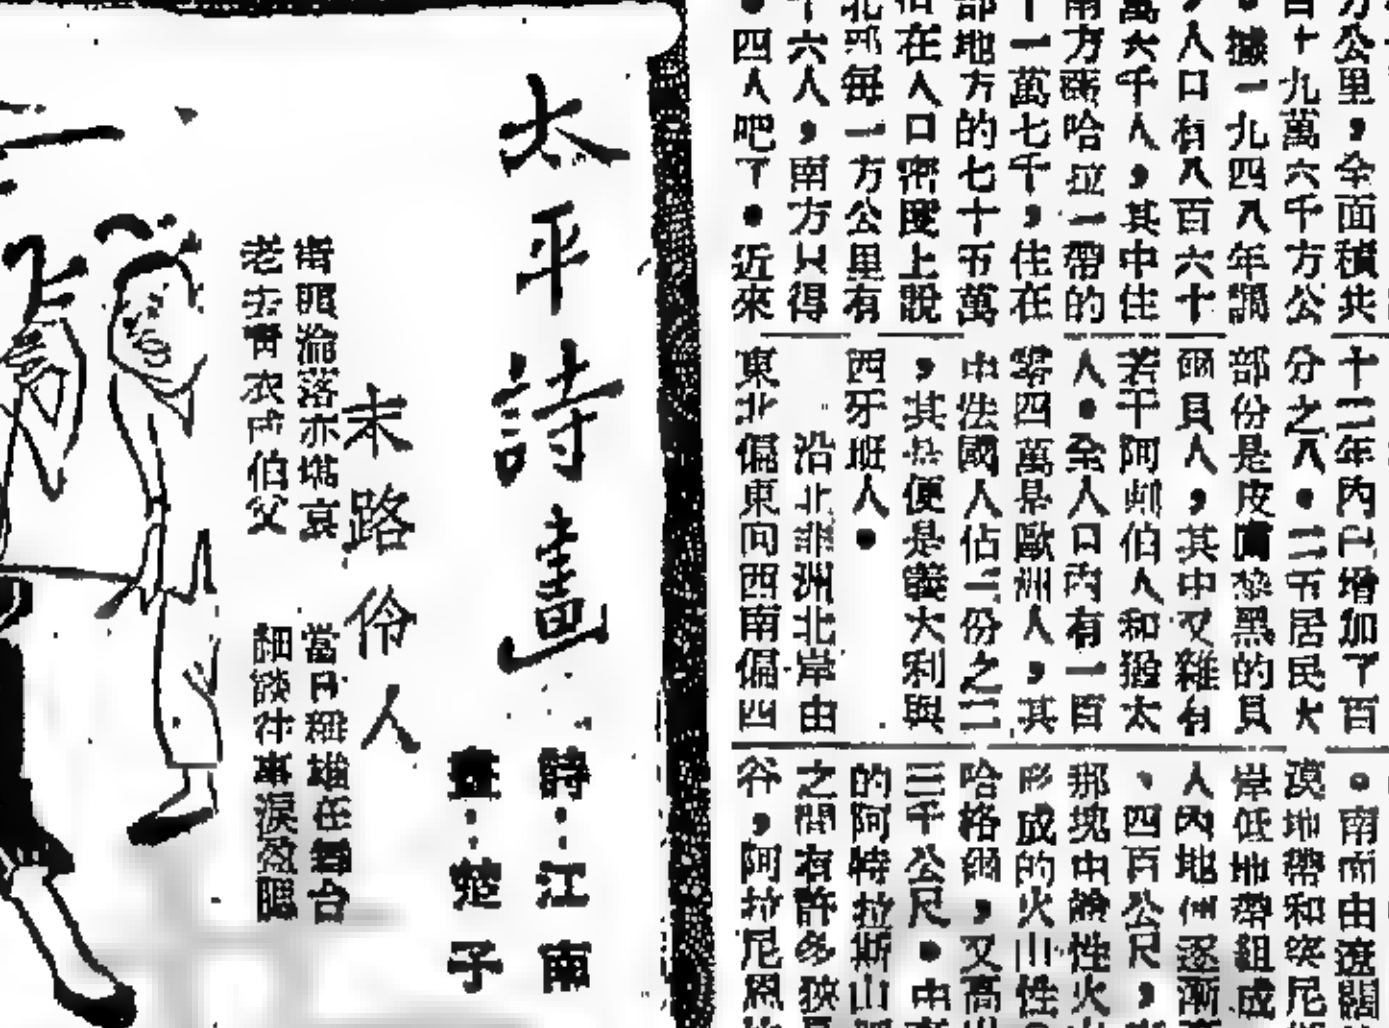 方公里，全面積共
百十九萬六千方公
。據一九四八年調
，人口有八百六十
萬六千人，其中住
南方撒哈拉一帶的
十一萬七千，住在
部地方的七十五萬
在人口密度上說
北部每一方公里有
十六人，南方只得
四人吧了。近來
十二年內已增加了百
分之八。二五居民大
部份是皮膚黎黑的貝
爾貝人，其中又雜有
若干阿剌伯人和猶太
人。全人口內有一百
零四萬是歐洲人，其
中法國人佔三份之二
，其次便是義大利與
西牙班人。
沿北非洲北岸由
東北偏東向西南偏西
。南面由遼闊
漠地帶和突尼
岸低地帶組成
人內地便逐漸
、四百公尺，
那塊由鹼性火山
形成的火山性
哈格爾，又高出
三千公尺。中
的阿特拉斯山
之間有許多狹長
谷，阿拉尼恩
太平詩畫
詩：江南
畫：楚子
末路伶人
淪落亦堪哀 當日稱雄在舞台
老去青衣成伯父 細談往事淚盈眶